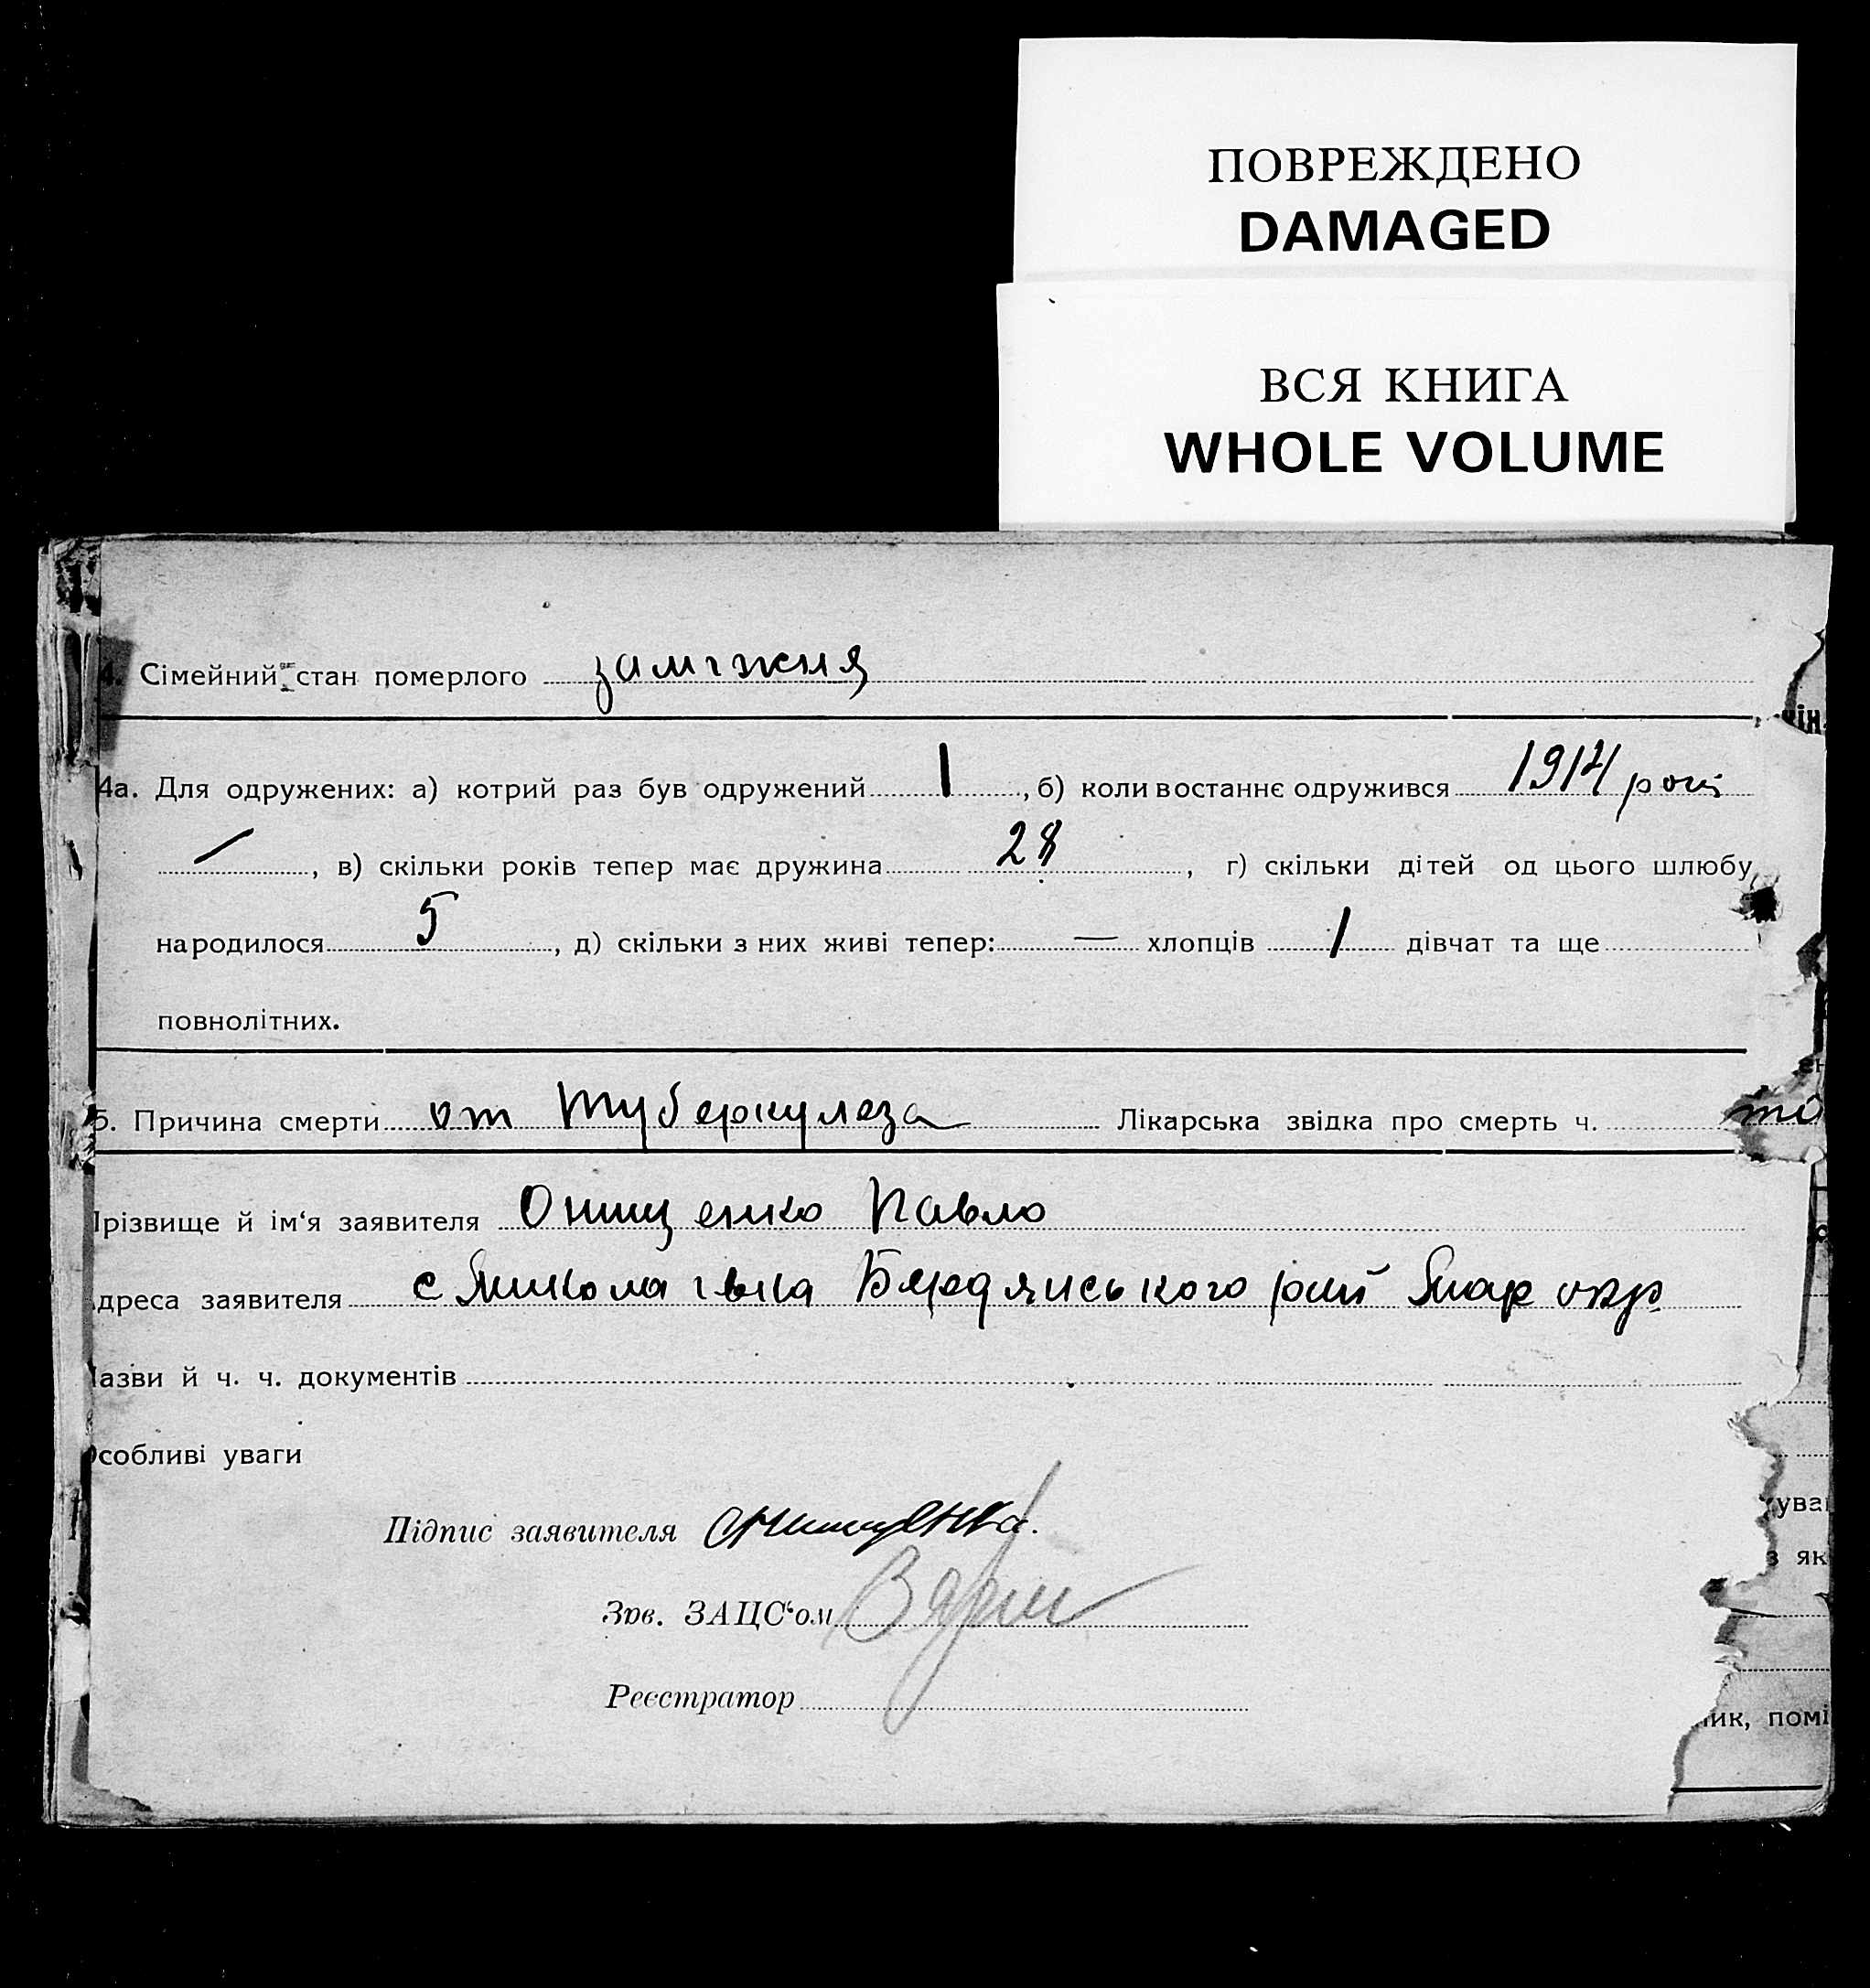 ПОВРЕЖДЕНО
DAMAGED
ВСЯ КНИГА
WHOLE VOLUME
4. Сімейний стан померлого заміжня
4а. Для одружених: а) котрий раз був одружений 1, б) коли востаннє одружився 1914 році
—, в) скільки років тепер має дружина 28, г) скільки дітей од цього шлюбу
народилося 5, д) скільки з них живі тепер: — хлопців 1 дівчат та ще
повнолітних.
5. Причина смерти от туберкулеза Лікарська звідка про смерть ч.
Прізвище й ім‘я заявителя Онищенко Павло
Адреса заявителя с Миколаівка Бердянського рай Мар окр
Назви й ч. ч. документів
Особливі уваги
Підпис заявителя
Зав. ЗАЦС‘ом
Реєстратор
ик, помі